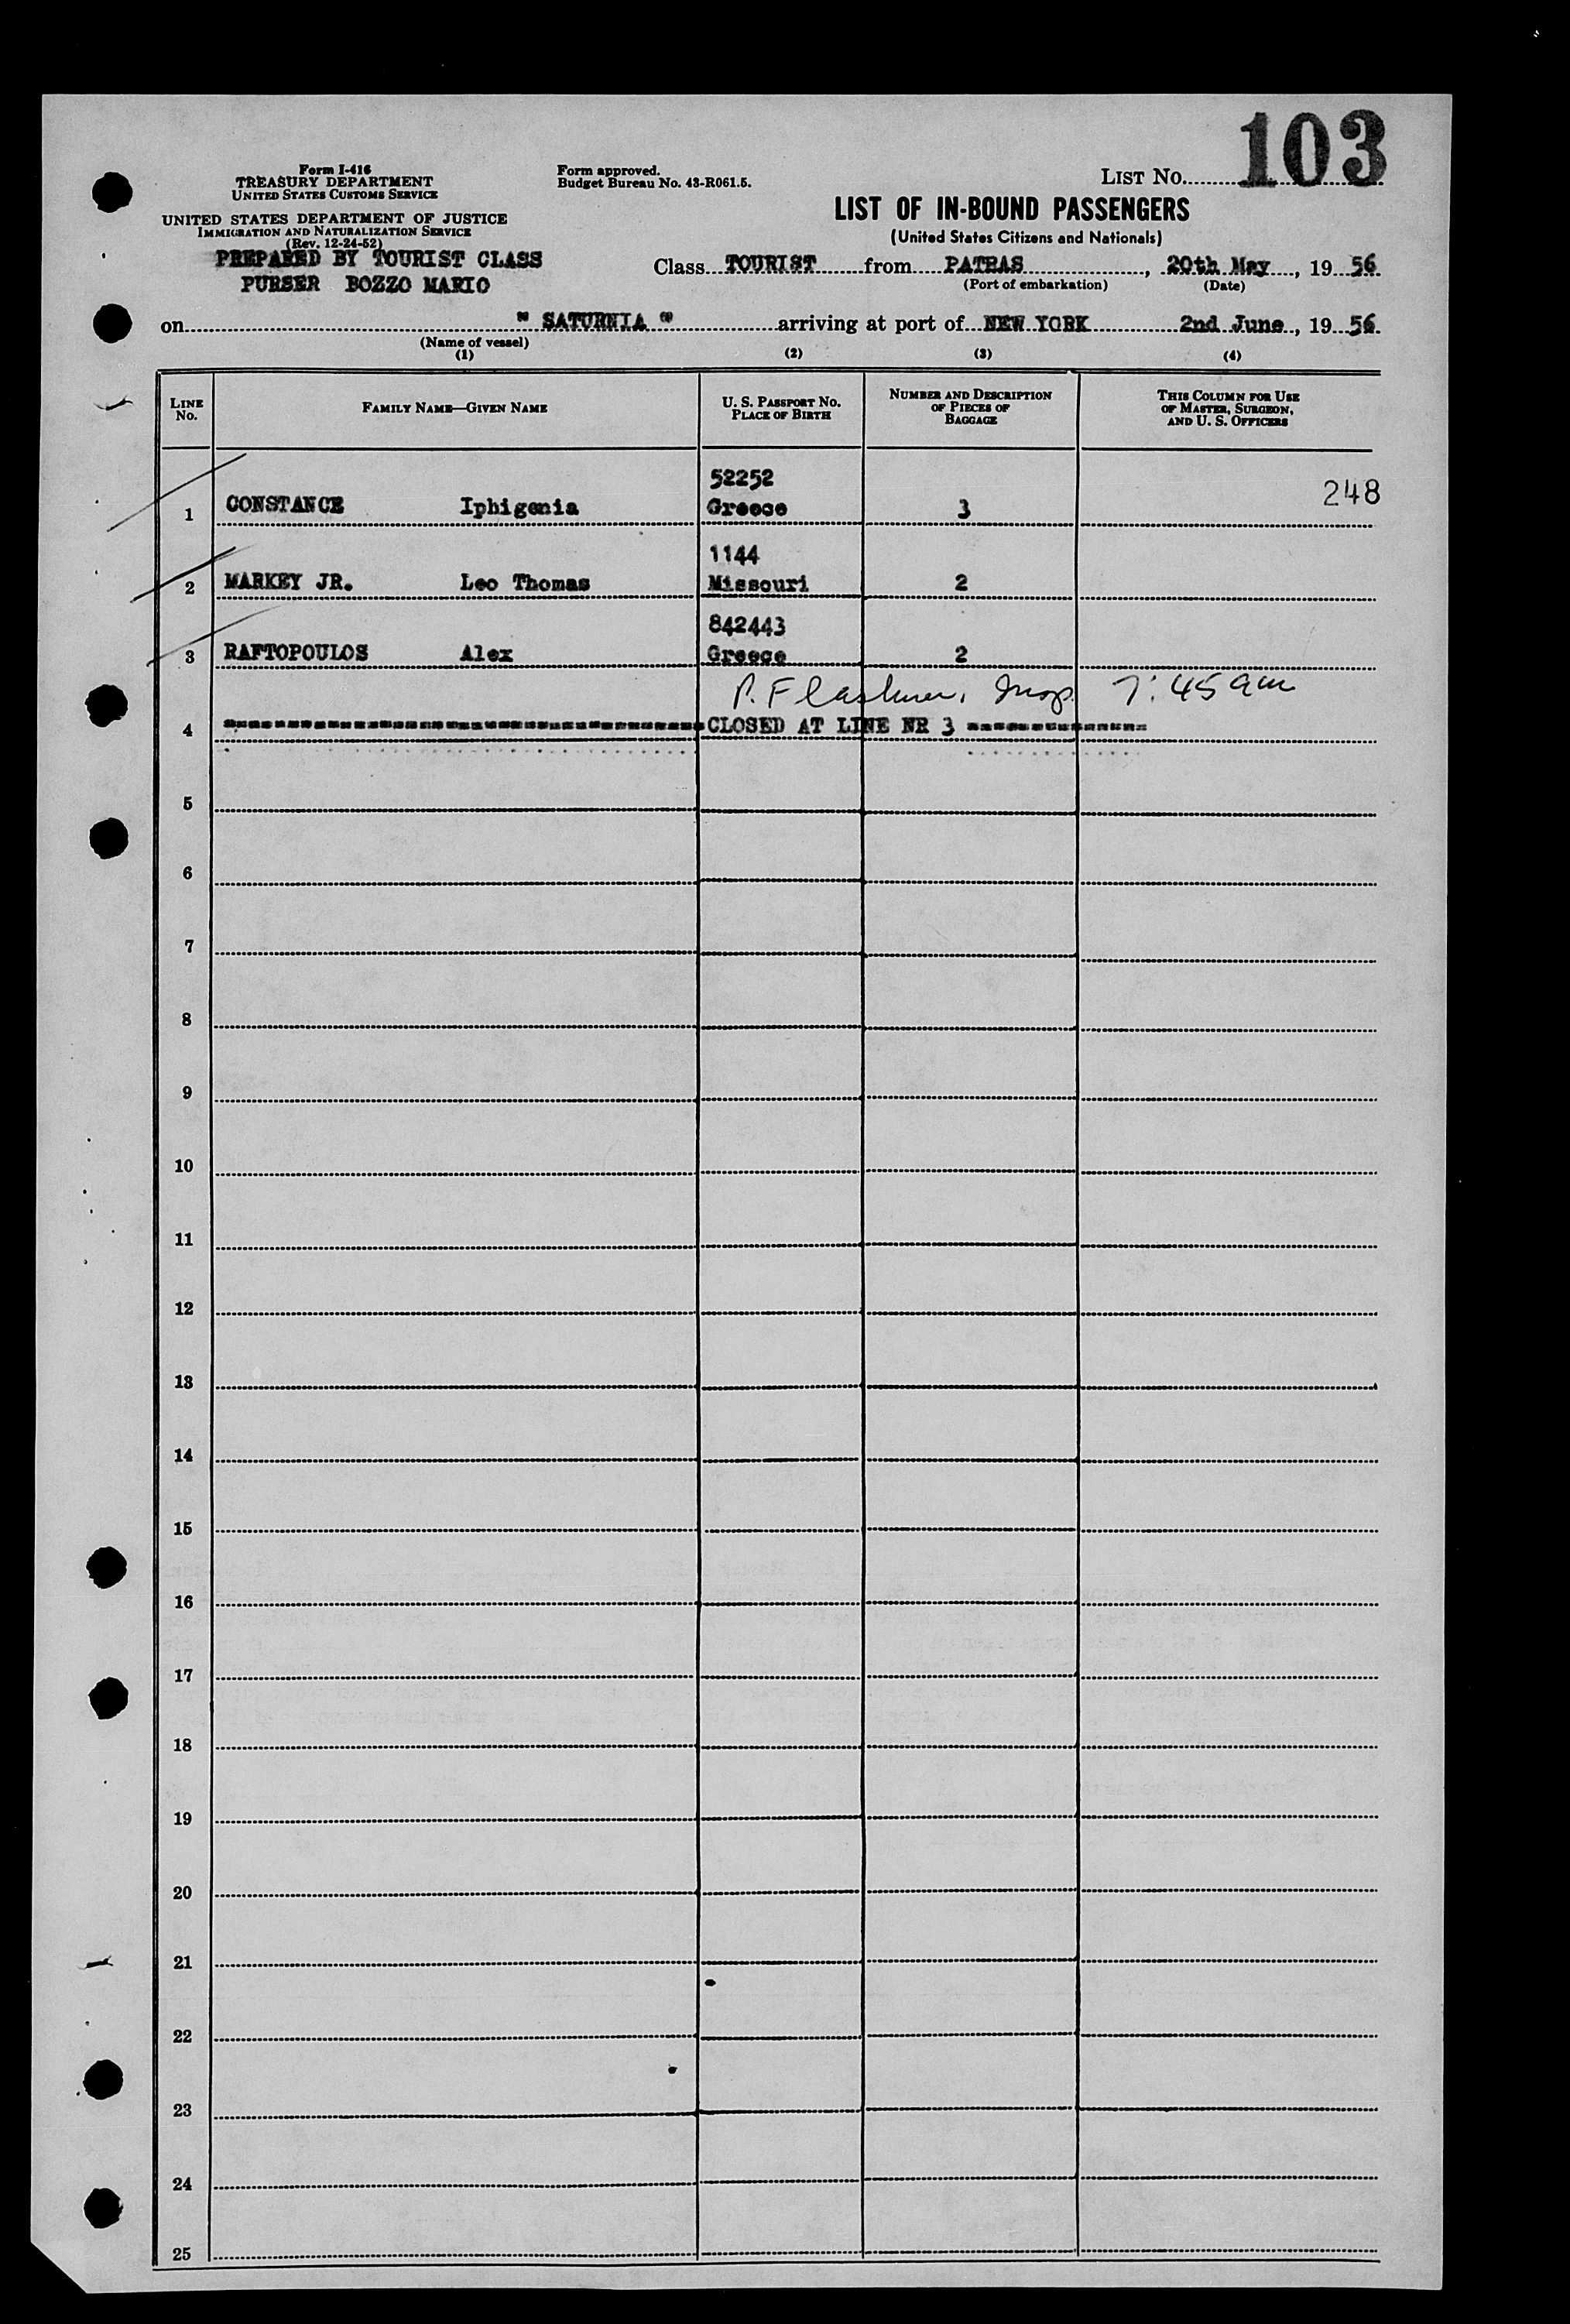 103
Form I-416
TREASURY DEPARTMENT
UNITED STATES CUSTOMS SERVICE
Form approved.
Budget Bureau No. 43-R061.5.
LIST NO.
UNITED STATES DEPARTMENT OF JUSTICE
IMMIGRATION AND NATURALIZATION SERVICE
(Rev. 12-24-52)
LIST OF IN-BOUND PASSENGERS
(United States Citizens and Nationals)
PREPARED BY TOURIST CLASS
PURSER BOZZO MARIO
Class TOURIST from PATRAS, 20th May, 19 56
(Port of embarkation) (Date)
on " SATURNIA " arriving at port of NEW YORK 2nd June, 19 56
(Name of vessel)
(1) (2) (3) (4)
LINE NO. FAMILY NAME—GIVEN NAME U. S. PASSPORT NO. PLACE OF BIRTH NUMBER AND DESCRIPTION OF PIECES OF BAGGAGE THIS COLUMN FOR USE OF MASTER, SURGEON, AND U. S. OFFICERS
52252 248
1 CONSTANCE Iphigenia Greece 3
1144
2 MARKEY JR. Leo Thomas Missouri 2
842443
3 RAFTOPOULOS Alex Greece 2
P. Insp. 7:45 am
4 CLOSED AT LINE NR 3
5
6
7
8
9
10
11
12
13
14
15
16
17
18
19
20
21
22
23
24
25